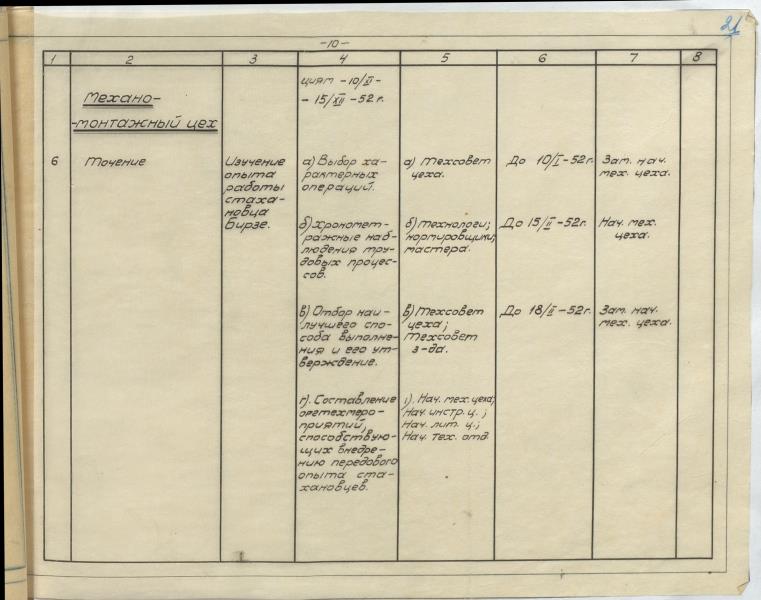 21
-10-
1 2 3 4 5 6 7 8
Механо-
-монтажный цех
ций" -10/II-
- 15/XII -52 г.
6
Точение
Изучение
опыта
работы
стаха-
новца
Бирзе.
а) Выбор ха-
рактерных
операций.
а) Техсовет
цеха.
До 10/I -52г.
Зам. нач.
мех. цеха.
б) Хрономет-
ражные наб-
людения тру-
довых процес-
сов.
б) Технологи;
нормировщики;
мастера.
До 15/II -52г.
Нач. мех.
цеха.
в) Отбор наи-
лучшего спо-
соба выполне-
ния и его ут-
верждение.
в) Техсовет
цеха;
Техсовет
з-да.
До 18/II -52г.
Зам. нач.
мех. цеха.
г). Составление
оргтехмеро-
приятий,
способствую-
щих внедре-
нию передового
опыта ста-
хановцев.
г). Нач. мех. цеха;
Нач. инстр. ц. ;
Нач. лит. ц. ;
Нач. тех. отд.